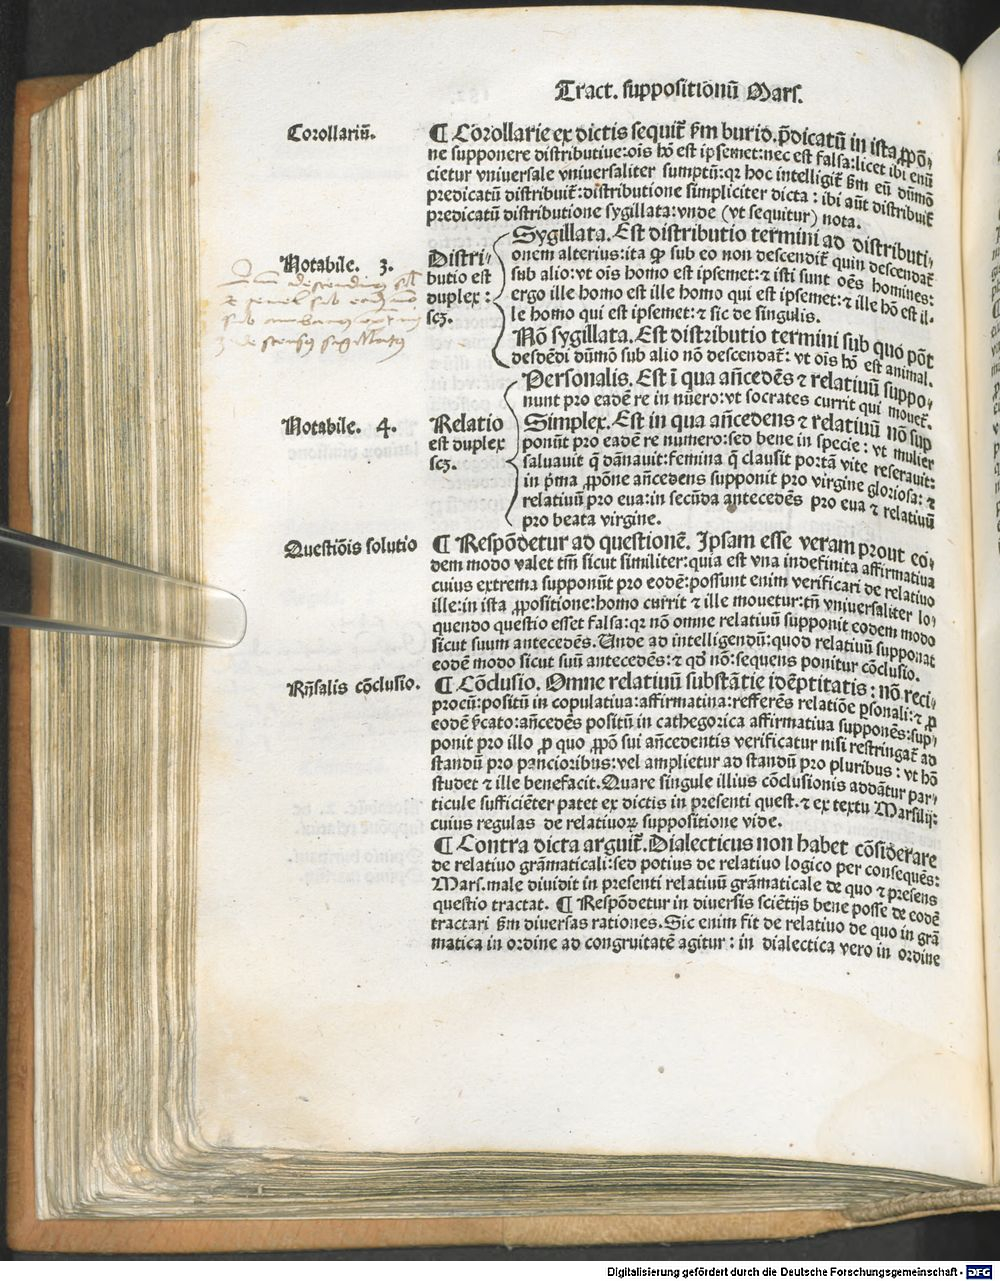 Tract. suppositionū Mars.
Corollariū.
¶ Corollarie ex dictis sequit̃ ẜm burid. p̄dicatū in ista ꝓpō-
ne supponere distributiue: oīs hō est ipsemet: nec est falsa: licet ibi enū
cietur vniuersale vniuersaliter sumptū: qꝛ hoc intelligit̃ ẜm eū dūmō
predicatū distribuit̃: distributione simpliciter dicta: ibi aūt distribuit̃
predicatū distributione sygillata: vnde (vt sequitur) nota.
Notabile. 3.
Distri-
butio est
duplex:
scꝫ.
Sygillata. Est distributio termini ad distributi-
onem alterius: ita ꝙ sub eo non descendit̃ quin descendat̃
sub alio: vt oīs homo est ipsemet: ⁊ isti sunt oēs homines:
ergo ille homo est ille homo qui est ipsemet: ⁊ ille hō est il-
le homo qui est ipsemet: ⁊ sic de singulis.
Nō sygillata. Est distributio termini sub quo pōt
desdēdi dūmō sub alio nō descendat̃: vt oīs hō est animal.
Notabile. 4.
Relatio
est duplex
scꝫ.
Personalis. Est ī qua añcedēs ⁊ relatiuū suppo-
nunt pro eadē re in nūero: vt socrates currit qui mouet̃.
Simplex. Est in qua añcedens ⁊ relatiuū nō sup
ponūt pro eadē re numero: sed bene in specie: vt mulier
saluauit q̄ dānauit: femina q̄ clausit portā vite reserauit:
in p̄ma ꝓpōne añcedens supponit pro virgine gloriosa: ⁊
relatiuū pro eua: in secūda antecedēs pro eua ⁊ relatiuū
pro beata virgine.
Questiōis solutio
¶ Respōdetur ad questionē. Ipsam esse veram prout eo-
dem modo valet tm̄ sicut similiter: quia est vna indefinita affirmatiua
cuius extrema supponūt pro eodē: possunt enim verificari de relatiuo
ille: in ista ꝓpositione: homo currit ⁊ ille mouetur: tñ vniuersaliter lo-
quendo questio esset falsa: qꝛ nō omne relatiuū supponit eodem modo
sicut suum antecedēs. Unde ad intelligendū: quod relatiuū supponat
eodē modo sicut suū antecedēs: ⁊ qď nō: sequens ponitur cōclusio.
Rñsalis cōclusio.
¶ Cōclusio. Omne relatiuū substātie idēptitatis: nō reci-
procū: positū in copulatiua: affirmatina: refferēs relatiōe ꝑsonali: ⁊ ꝑ
eodē v̓cato: añcedēs positū in cathegorica affirmatiua supponēs: sup-
ponit pro illo ꝓ quo ꝓpō sui añcedentis verificatur nisi restringat̃ ad
standū pro paucioribus: vel amplietur ad standū pro pluribus: vt hō
studet ⁊ ille benefacit. Quare singule illius cōclusionis addātur par-
ticule sufficiēter patet ex dictis in presenti quest. ⁊ ex textu Marsilij:
cuius regulas de relatiuoꝝ suppositione vide.
¶ Contra dicta arguit̃. Dialecticus non habet cōsiderare
de relatiuo grāmaticali: sed potius de relatiuo logico per consequēs:
Mars. male diuidit in presenti relatiuū grāmaticale de quo ⁊ presens
questio tractat. ¶ Respōdetur in diuersis sciētijs bene posse de eodē
tractari ẜm diuersas rationes. Sic enim fit de relatiuo de quo in grā
matica in ordine ad congruitatē agitur: in dialectica vero in ordine
Digitalisierung gefördert durch die Deutsche Forschungsgemeinschaft - DFG